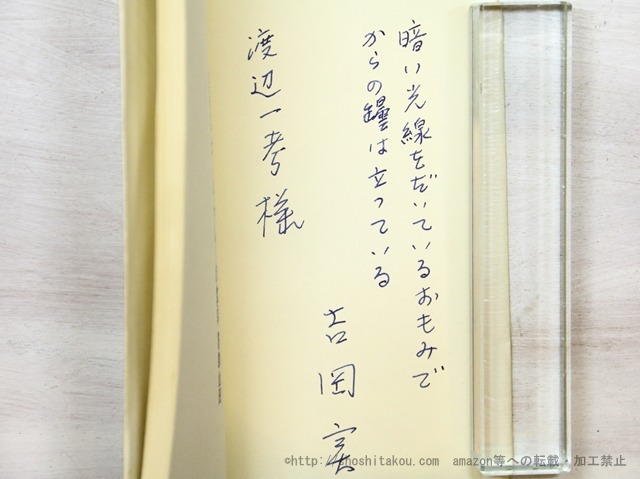 暗い光線をだいているおもみで
からの罎は立っている
吉岡実
渡辺一考様
©http://hoshitakou.com amazon等への転載・加工禁止